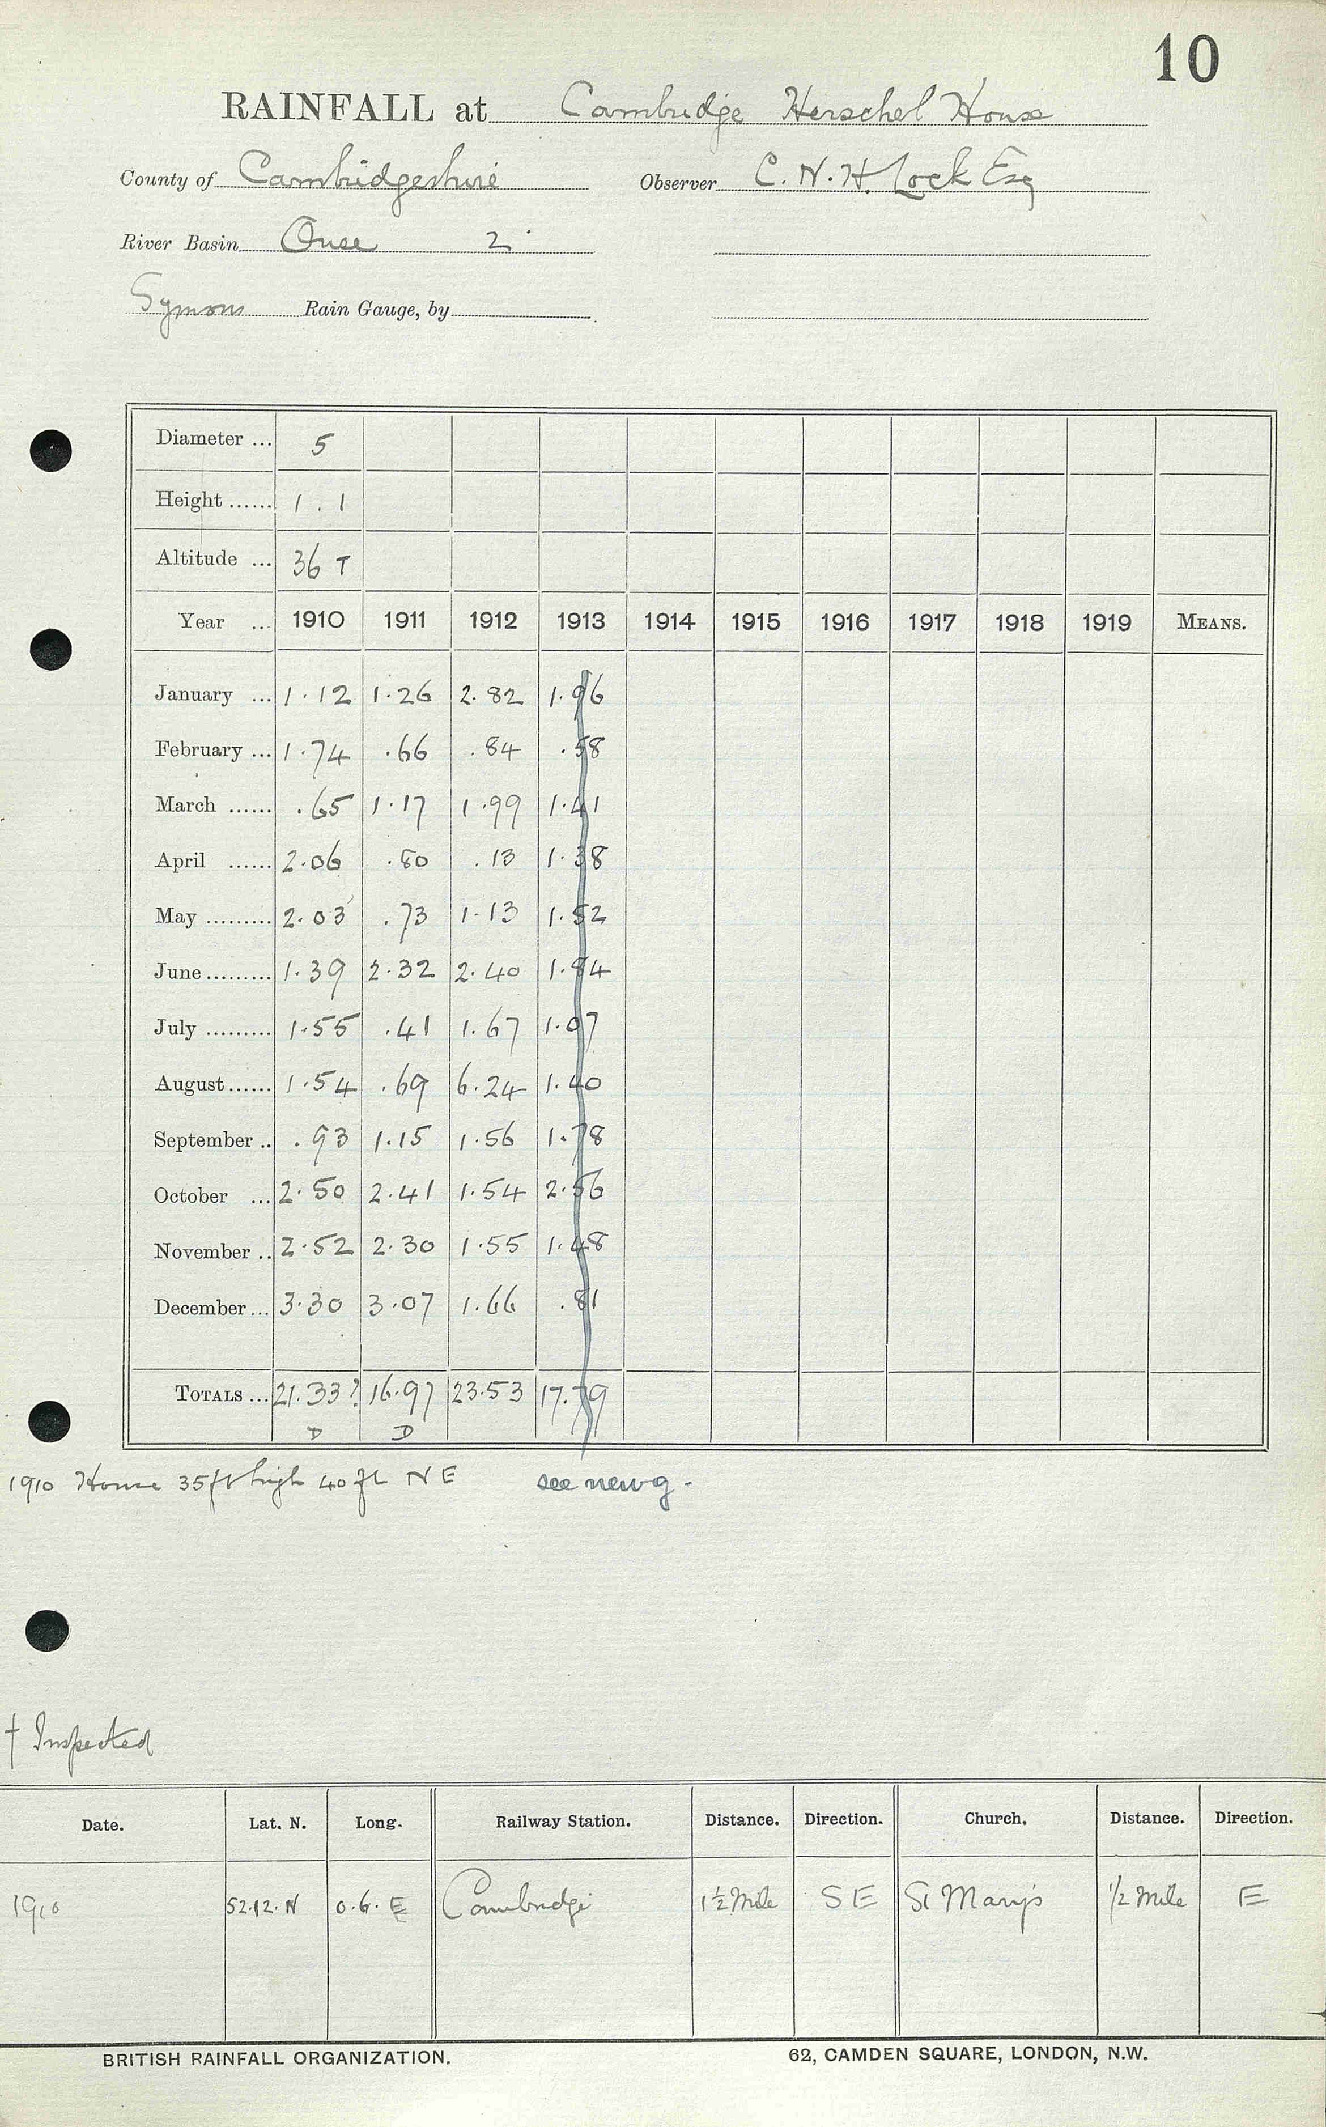 10
RAINFALL at Cambridge Herschel House
County of Cambridgeshire Observer C. N. H. Lock Esq
River Basin Ouse 2
Symons Rain Gauge, by
Diameter ... 5
Height ...... 1 . 1
Altitude ... 36 T
Year ... 1910 1911 1912 1913 1914 1915 1916 1917 1918 1919 MEANS.
January ... 1.12 1.26 2.82 1.96
February ... 1.74 .66 .84 .58
March ...... .65 1.17 1.99 1.41
April ...... 2.06 .80 .13 1.38
May ......... 2.03 .73 1.13 1.52
June ......... 1.39 2.32 2.40 1.84
July ......... 1.55 .41 1.67 1.07
August ...... 1.54 .69 6.24 1.40
September .. .93 1.15 1.56 1.78
October ... 2.50 2.41 1.54 2.56
November .. 2.52 2.30 1.55 1.48
December ... 3.30 3.07 1.66 .81
TOTALS ... 21.33? 16.97 23.53 17.79
D D
1910 House 35ft high 40 ft N E see new g.
† Inspected
Date. Lat. N. Long. Railway Station. Distance. Direction. Church. Distance. Direction.
1910 52.12. N 0.6. E Cambridge 1½ Mile S E St Mary's 1/2 Mile E
BRITISH RAINFALL ORGANIZATION. 62, CAMDEN SQUARE, LONDON, N.W.